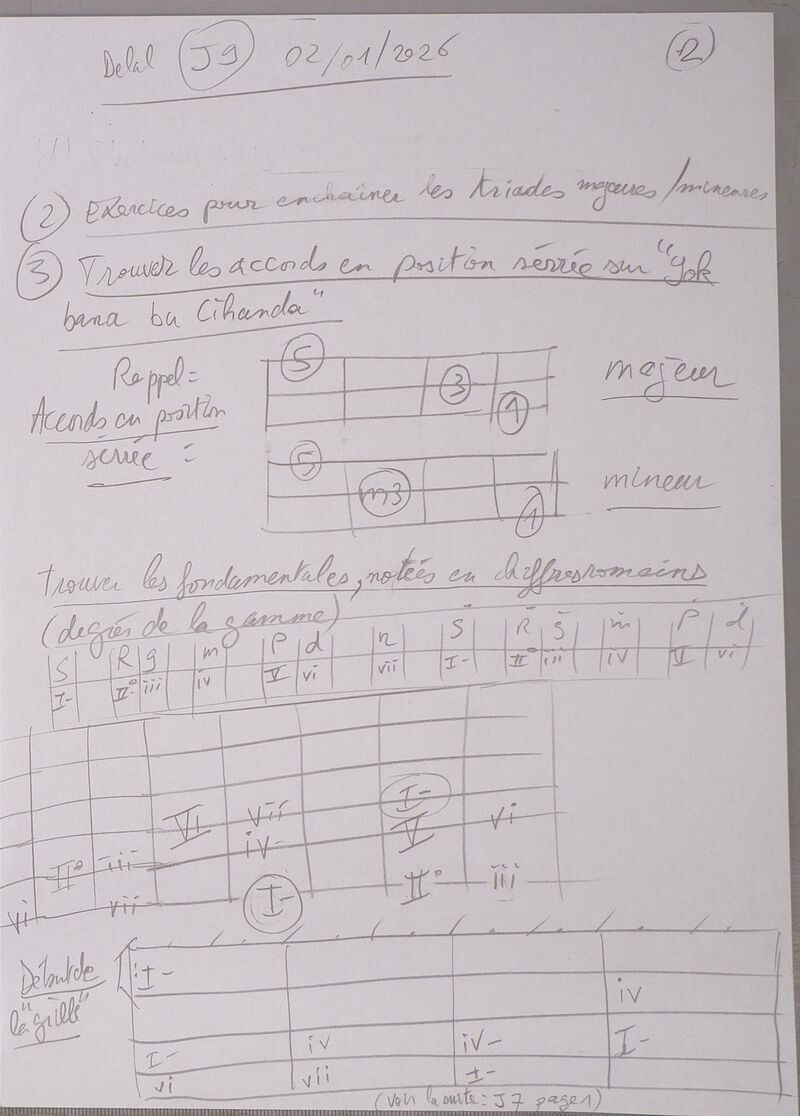 Delal J9 02/01/2026 2
2 Exercices pour enchaîner les triades majeures/mineures
3 Trouver les accords en position sérrée sur "Yok
bana bu Cihanda"
Rappel =
Accords en position
sérrée =
5 3 1 majeur
5 m3 1 mineur
Trouver les fondamentales, notées en chiffres romains
(degrés de la gamme)
S R g m P d n S R g m P d
I- II° iii iv V vi vii I- II° iii iv V vi
I-
VI vii V vi
iv-
II° iii II° iii
vi vii I-
Début de
"la grille"
I-
iv
I- iv iv- I-
vi vii I-
(voir la suite : J7 page 1)